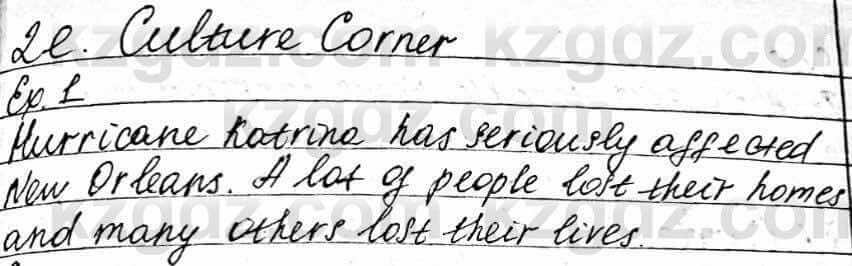 2e. Culture Corner
Ex. 1
Hurricane Katrina has seriously affected
New Orleans. A lot of people lost their homes
and many others lost their lives.
kzgdz.com